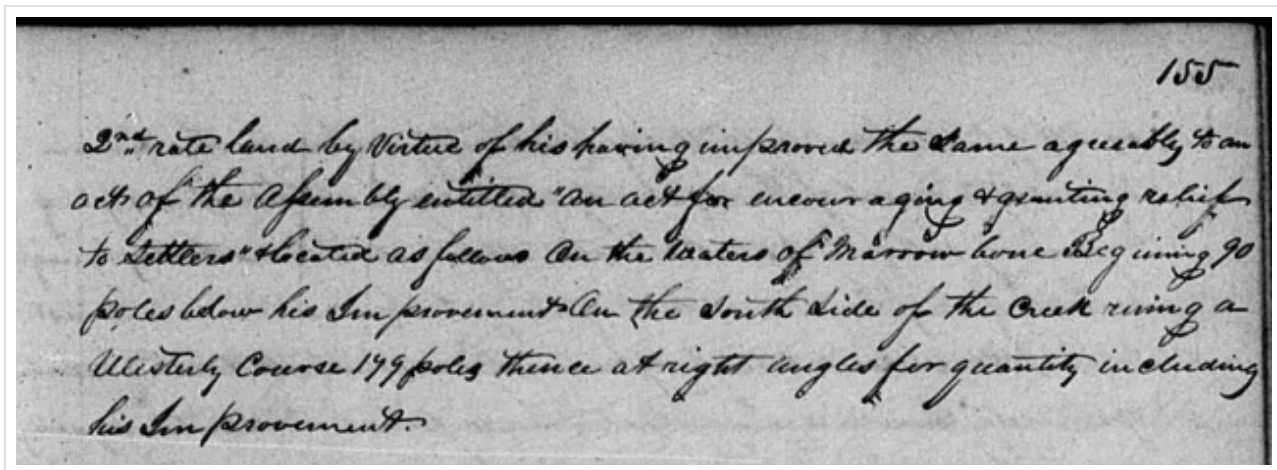 155
2nd rate land by Virtue of his having improved the Same agreeably to an
act of the Assembly entitled "An act for encouraging & granting relief
to Settlers" & located as follows On the Waters of Marrow bone Begining 90
poles below his Improvement On the South Side of the Creek runing a
Westerly Course 179 poles thence at right angles for quantity including
his Improvement.